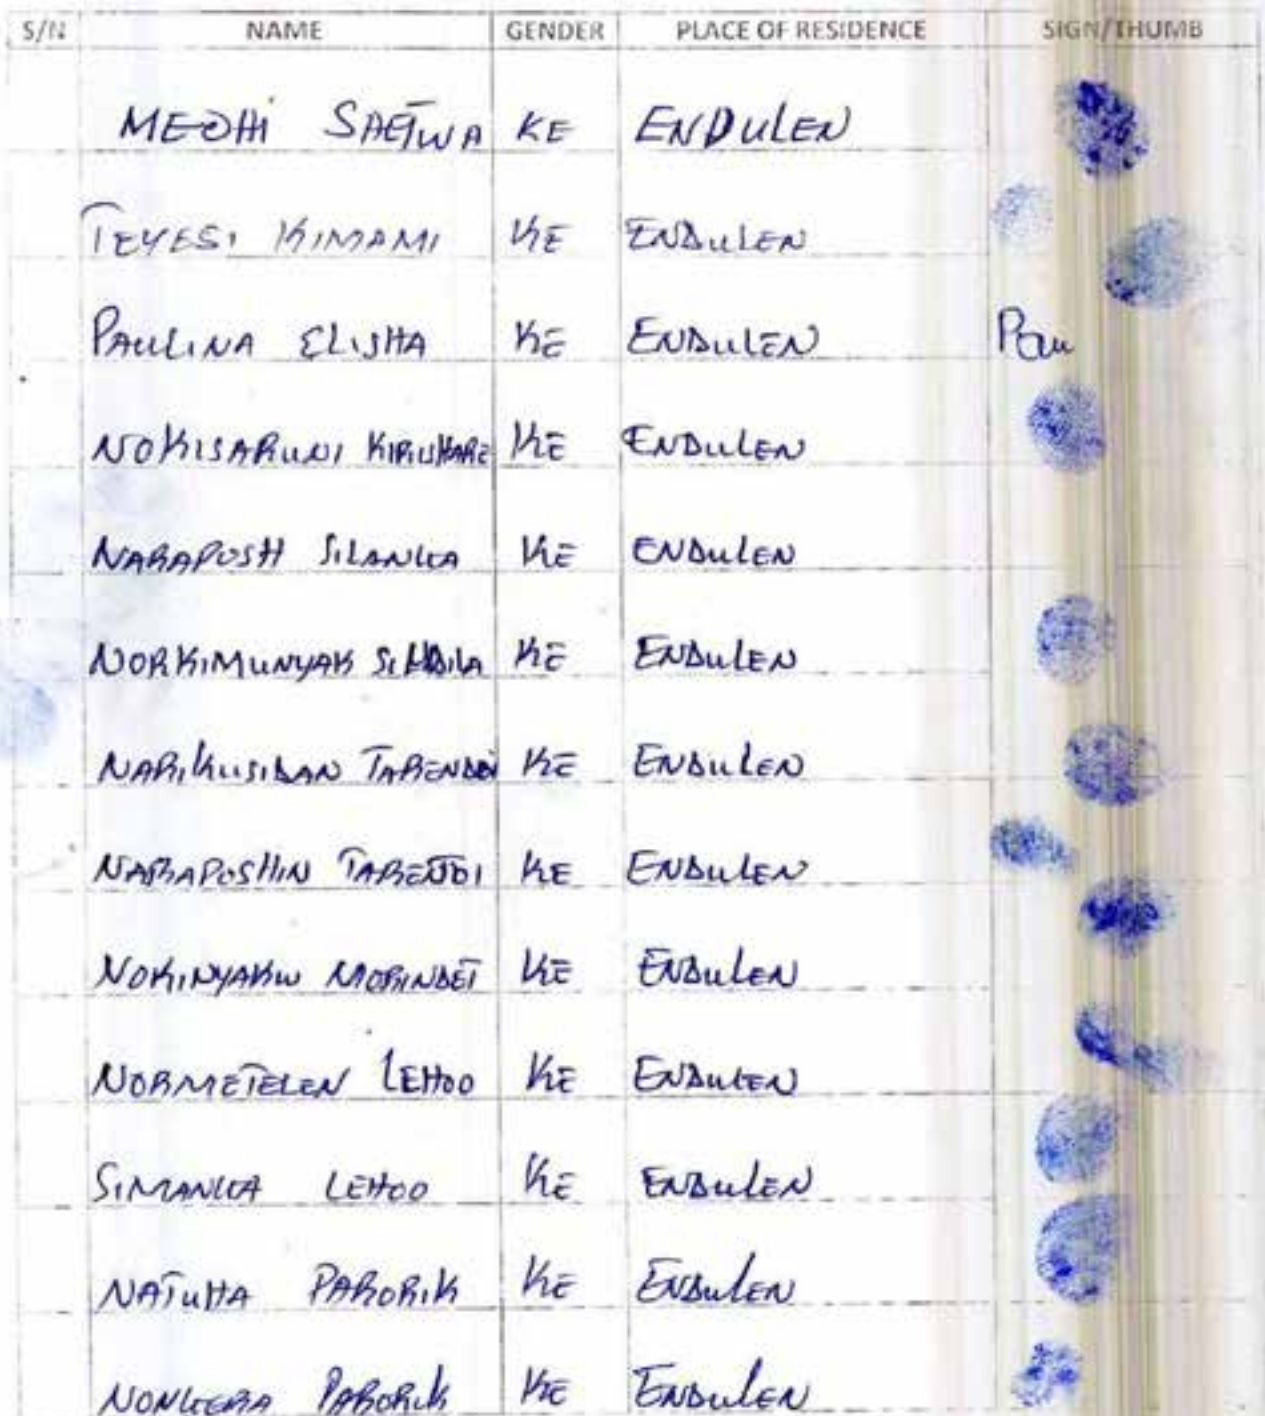 S/N NAME GENDER PLACE OF RESIDENCE SIGN/THUMB
MEOHI SAETWA KE ENDULEN
TEYESI KIMAMI KE ENDULEN
PAULINA ELISHA KE ENDULEN Pau
NOKISARUNI KE ENDULEN
NARAPOSH SILANKA KE ENDULEN
NORKIMUNYAK KE ENDULEN
NARIKUSIDAN TARENDOI KE ENDULEN
NARAPOSHIN TARENDOI KE ENDULEN
NOKINYAKU MORINDET KE ENDULEN
NORMETELEN LEHOO KE ENDULEN
SIMANKA LEHOO KE ENDULEN
NATUHA PARORIK KE ENDULEN
NONKERA PARORIK KE ENDULEN